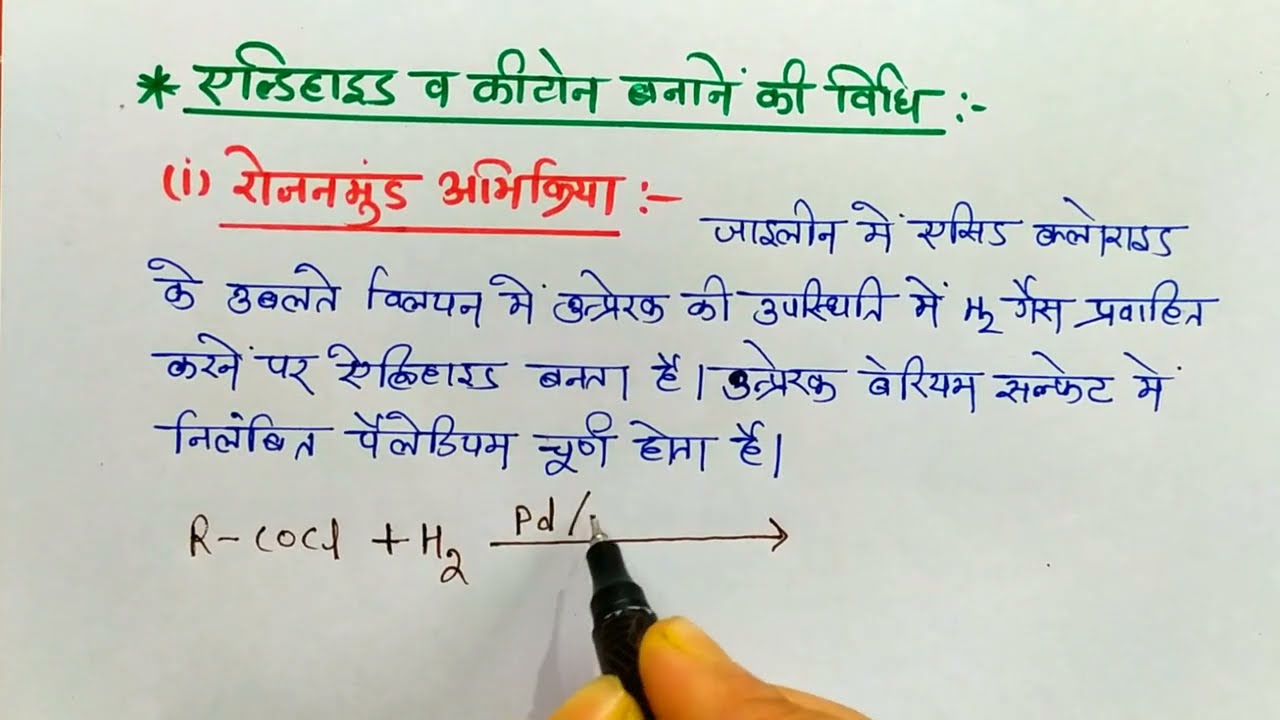 * एल्डिहाइड व कीटोन बनानें की विधि :-
(i) रोजनमुंड अभिक्रिया :-
जाइलीन में एसिड क्लोराइड
के उबलते विलयन में उत्प्रेरक की उपस्थिति में H2 गैस प्रवाहित
करनें पर ऐल्डिहाइड बनता है। उत्प्रेरक बेरियम सल्फेट में
निलंबित पैलेडियम चूर्ण होता है।
R-COCl + H2 Pd/